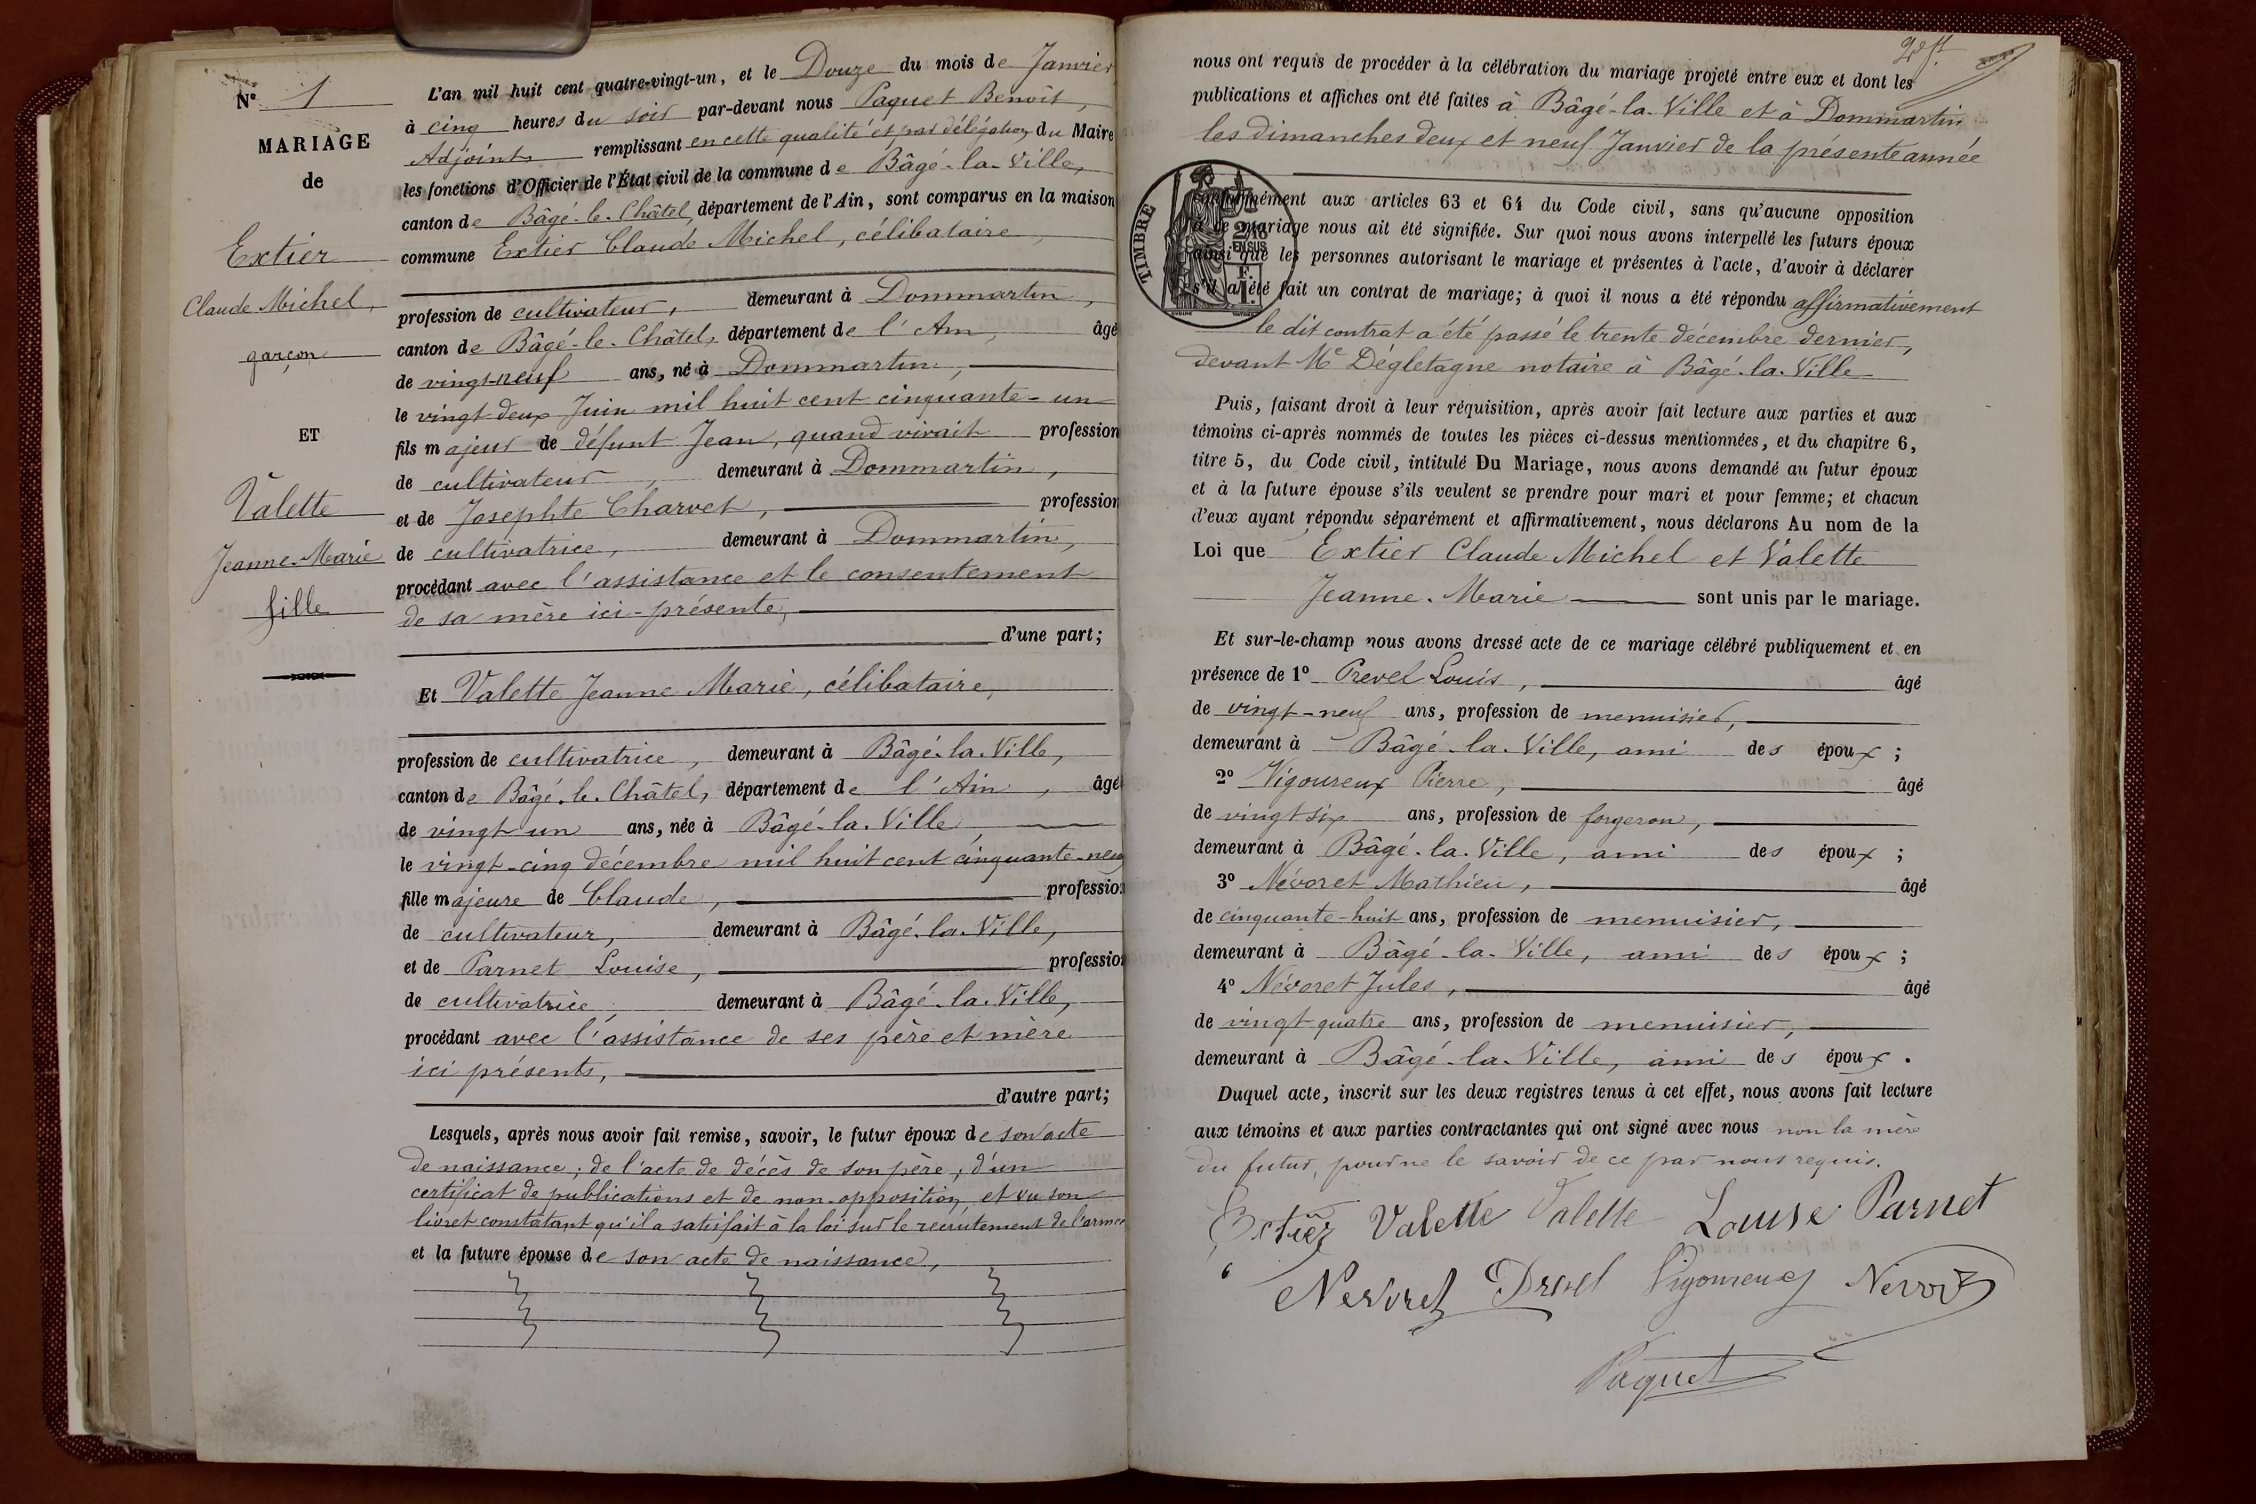 N° 1
MARIAGE
de
Extier
Claude Michel,
garçon
ET
Valette
Jeanne-Marie
fille
L'an mil huit cent quatre-vingt-un, et le Douze du mois de Janvier
à cinq heures du soir par-devant nous Paquet Benoît,
Adjoint remplissant en cette qualité et par délégation du Maire
les fonctions d'Officier de l'État civil de la commune de Bâgé-la-Ville,
canton de Bâgé-le-Châtel, département de l'Ain, sont comparus en la maison
commune Extier Claude Michel, célibataire,
profession de cultivateur, demeurant à Dommartin,
canton de Bâgé-le-Châtel, département de l'Ain, âgé
de vingt-neuf ans, né à Dommartin,
le vingt-deux Juin mil huit cent cinquante-un
fils majeur de défunt Jean, quand vivait profession
de cultivateur, demeurant à Dommartin,
et de Josephte Charvet, profession
de cultivatrice, demeurant à Dommartin,
procédant avec l'assistance et le consentement
de sa mère ici-présente,
d'une part;
Et Valette Jeanne Marie, célibataire,
profession de cultivatrice, demeurant à Bâgé-la-Ville,
canton de Bâgé-le-Châtel, département de l'Ain, âgé
de vingt un ans, née à Bâgé-la-Ville,
le vingt-cinq décembre mil huit cent cinquante-neuf
fille majeure de Claude, profession
de cultivateur, demeurant à Bâgé-la-Ville,
et de Parnet Louise, profession
de cultivatrice, demeurant à Bâgé-la-Ville,
procédant avec l'assistance de ses père et mère
ici présents,
d'autre part;
Lesquels, après nous avoir fait remise, savoir, le futur époux de son acte
de naissance; de l'acte de décès de son père; d'un
certificat de publications et de non-opposition, et vu son
livret constatant qu'il a satisfait à la loi sur le recrutement de l'armée
et la future épouse de son acte de naissance,
nous ont requis de procéder à la célébration du mariage projeté entre eux et dont les
publications et affiches ont été faites à Bâgé-la-Ville et à Dommartin
les dimanches deux et neuf Janvier de la présente année
TIMBRE
2/10
EN SUS
F.
1.
conformément aux articles 63 et 64 du Code civil, sans qu'aucune opposition
à ce mariage nous ait été signifiée. Sur quoi nous avons interpellé les futurs époux
ainsi que les personnes autorisant le mariage et présentes à l'acte, d'avoir à déclarer
s'il a été fait un contrat de mariage; à quoi il nous a été répondu affirmativement
le dit contrat a été passé le trente décembre dernier,
devant Me Dégletagne notaire à Bâgé-la-Ville
Puis, faisant droit à leur réquisition, après avoir fait lecture aux parties et aux
témoins ci-après nommés de toutes les pièces ci-dessus mentionnées, et du chapitre 6,
titre 5, du Code civil, intitulé Du Mariage, nous avons demandé au futur époux
et à la future épouse s'ils veulent se prendre pour mari et pour femme; et chacun
d'eux ayant répondu séparément et affirmativement, nous déclarons Au nom de la
Loi que Extier Claude Michel et Valette
Jeanne-Marie sont unis par le mariage.
Et sur-le-champ nous avons dressé acte de ce mariage célébré publiquement et en
présence de 1° Prevel Louis, âgé
de vingt-neuf ans, profession de menuisier,
demeurant à Bâgé-la-Ville, ami des époux;
2° Vigoureux Pierre, âgé
de vingt six ans, profession de forgeron,
demeurant à Bâgé-la-Ville, ami des époux;
3° Névoret Mathieu, âgé
de cinquante-huit ans, profession de menuisier,
demeurant à Bâgé-la-Ville, ami des époux;
4° Névoret Jules, âgé
de vingt-quatre ans, profession de menuisier,
demeurant à Bâgé-la-Ville, ami des époux.
Duquel acte, inscrit sur les deux registres tenus à cet effet, nous avons fait lecture
aux témoins et aux parties contractantes qui ont signé avec nous non la mère
du futur, pour ne le savoir de ce par nous requis.
Extier Valette Valette Louise Parnet
Nevoret Prevel Vigoureux
Paquet